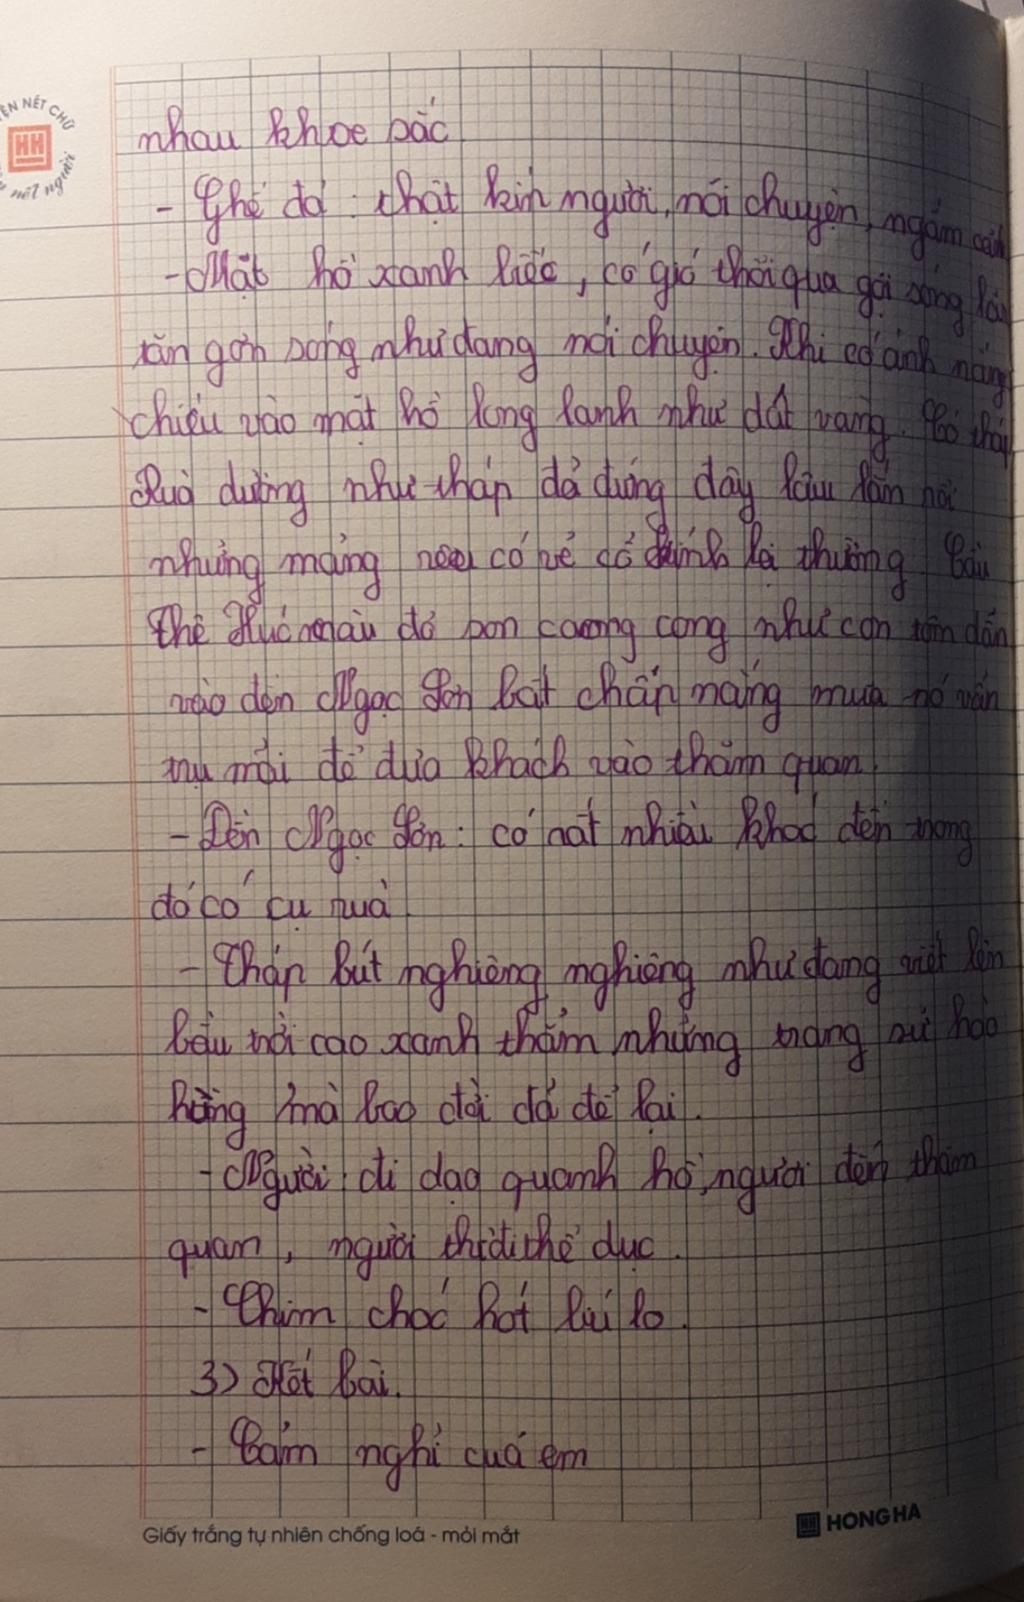 nhau khoe sắc
- Ghế đá : chật kín người, nói chuyện, ngắm cảnh
- Mặt hồ xanh biếc, có gió thổi qua gợi sóng lăn
tăn gơn sóng như đang nói chuyện. Khi có ánh nắng
chiếu vào mặt hồ long lanh như dát vàng. Có tháp
Rùa dường như tháp đã đứng đây lâu lắm nổi
những mảng có vẻ cổ kính lạ thường Cầu
Thê Húc màu đỏ son coong cong như con tôm dẫn
vào đền Ngọc Sơn bất chấp nắng mưa nó vẫn
trụ mãi để đưa khách vào thăm quan.
- Đền Ngọc Sơn : có rất nhiều khác đến trong
đó có cụ rùa
- Tháp Bút nghiêng nghiêng như đang viết lên
bầu trời cao xanh thẳm những trang sử hào
hùng mà bao đời đã để lại.
- Người : đi dạo quanh hồ, người đến thăm
quan, người thì đi thể dục.
- Chim chóc hót líu lo.
3) Kết bài.
- Cảm nghĩ của em
Giấy trắng tự nhiên chống loá - mỏi mắt
HONG HA
NÉT CHỮ
HH
nết người